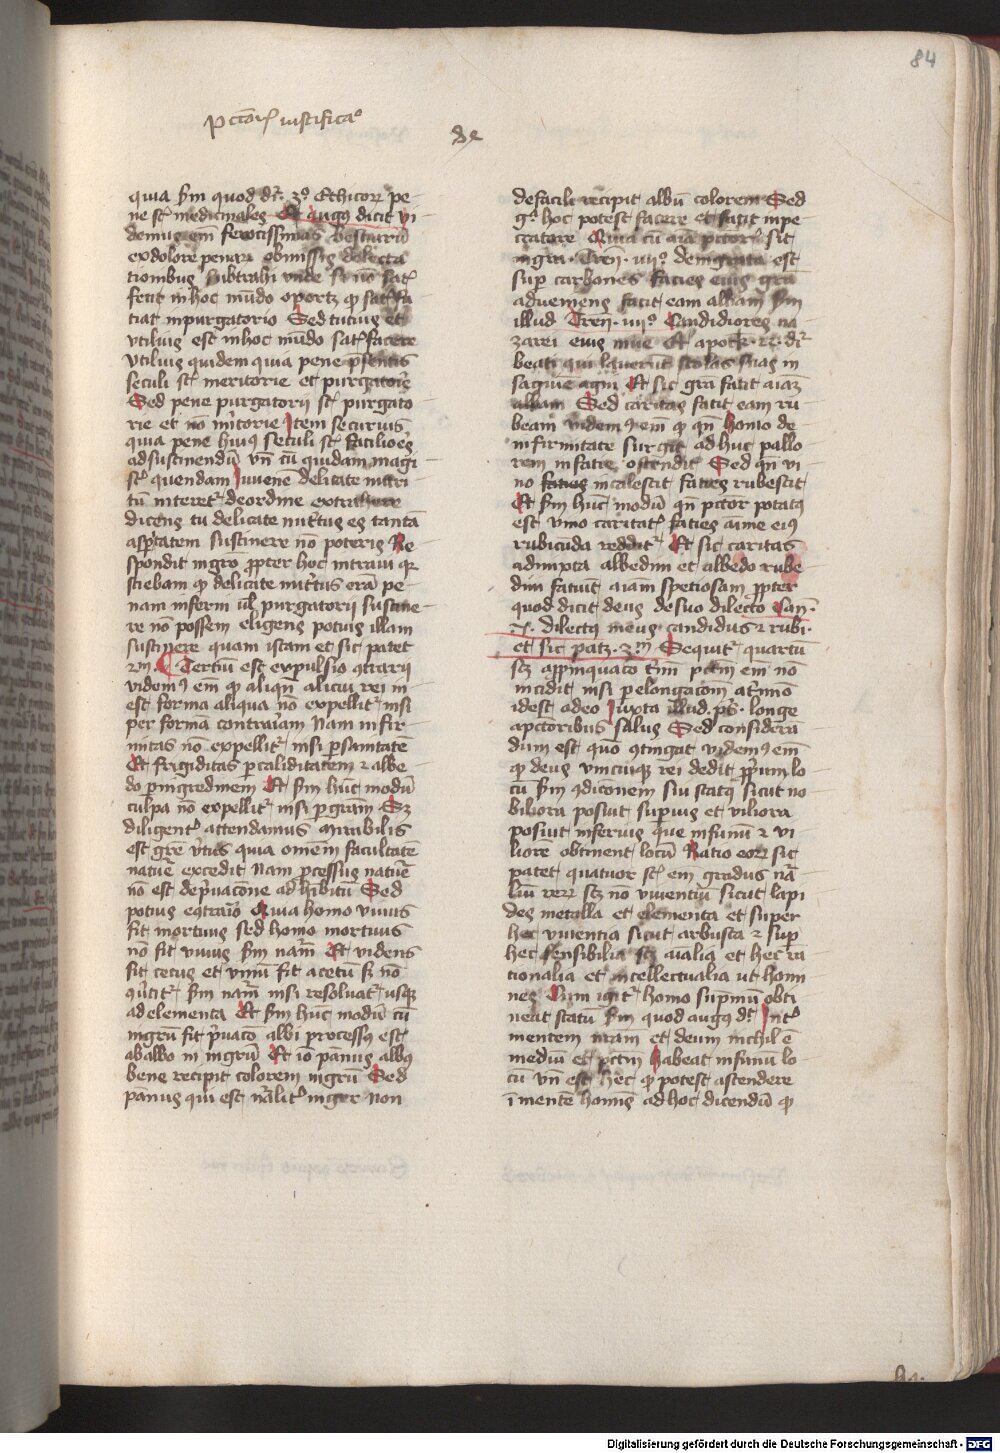 84
pctoris iustificaᵒ
de
quia ẜm quod dr̄ 3º Ethicoꝝ pe
ne st̄ medicinales Et augꝰ dicit vi
demus em̄ ferocissimas bestiarū
ex dolore penarū obmissis delecta
tionibus subtrahi vnde si nō satᵉ
fecit in hoc mūdo oportꝫ ꝙ satᵉ fa
ciat in purgatorio Sed tutius et
vtilius est in hoc mūdo satᵉ facere
vtilius quidem quia pene p̄sentis
seculi st̄ meritorie et purgatorie
Sed pene purgatorii st̄ purgato
rie et nō m̄itorie Item securius
quia pene huiꝰ seculi st̄ faciliores
ad sustinendū vn̄ cū quidam magi
stᵉ quendam Iuvene delicate nutri
tū interet᷑ de ordine extrahere
dicens tu delicate nutͥtus es tantā
asp̱itatem sustinere nō poteris Re
spondit mgrō ꝓpter hoc intraui qꝛ
sciebam ꝙ delicate nutͥtus erā pe
nam inferni ul̄ purgatorii sustine
re nō possem eligens potius illam
sustinere quam istam et sic patet
2m̄ Tertiū est expulsio ꝯtrarii
videmꝰ em̄ ꝙ aliqn̄ alicui rei in
est forma aliqua nō expellit᷑ nisi
per formā contrariam Nam infir
mitas nō expellit᷑ nisi ꝑ sanitatē
Et frigiditas ꝑ caliditatem ⁊ albe
do ꝑ nigredinem Et ẜm hūc modū
culpa nō expellit᷑ nisi ꝑ grām Sꝫ
diligentᵉ attendamus mirabilis
est grē v̄tus quia omēm facultatē
nature excedit Nam ꝓcessus nature
nō est de p̱uacōne ad hibitū Sed
potius eꝯtrario Quia homo viuus
fit mortuus sed homo mortuus
nō fit viuus ẜm narᵃm Et videns
fit cecus et vinū fit acetū ꝫ nō
ꝯūtit᷑ ẜm narᵃm nisi resoluat᷑ usꝗꝫ
ad elementa Et ẜm hūc modū cū
nigrū fit p̱uacō albi processꝰ est
ab albo in nigrū Et iō pānus albꝰ
bene recipit colorem nigrū Sed
pānus qui est nāliter niger non
de facile recipit albū colorem Sed
gᵃ hoc potest facere et facit in pe
ccatore Quia cū aīa pctoris sit
nigra Tren̄ iiijº denigrata est
sup̱ carbones facies eius grā
adueniens facit eam albam ẜm
illud Tren̄ iiijº Candidiores na
zarei eius niue Et apok 22 dr̄
beati qui lauerūt stolas suas in
sāguīe agni Et sic grā facit aīaꝫ
albam Sed caritas facit eam ru
beam videmꝰ em̄ ꝙ qn̄ homo de
infirmitate surgit adhuc pallo
rem in facie ostendit Sed qn̄ vi
no facies incalescit facies rubescit
Et ẜm hūc modū qn̄ pctor potatus
est vino caritatᵉ facies aīme eiꝰ
rubicūda reddit᷑ Et sic caritas
adiuncta albedini et albedo rube
dini faciūt aīam speciosam ꝓpter
quod dicit deus de suo dilecto Can̄
v dilectꝰ meus candidus ⁊ rubi
et sic patꝫ 3m̄ Sequit᷑ quartū
scꝫ appinquacō
incidit nisi ꝑ elongacōm
id est a deo Iuxta illud ps̄ longe
a pctoribus salus Sed considerā
dum est quō ꝯtingat videmꝰ em̄
ꝙ deus vnicuiqꝫ rei dedit ꝓprium lo
cū ẜm ꝯdiconem sui statꝰ sicut no
biliora posuit superius et viliora
posuit inferius que infimū ⁊ vi
liorē obtinent locū Ratio eoꝝ sic
patet quatuor st̄ em̄ gradus nā
liū reꝝ scꝫ nō viuentiū sicut lapi
des metalla et elementa et super
hec viuentia sicut arbusta ⁊ sup̱
hec sensibilia scꝫ aīalia et hec ra
tionalia et intellectualia ut homi
nes Cum igit᷑ homo sup̱mū obti
neat statū ẜm quod augꝰ dᵗ Intᵉ
mentem nr̄am et deum nichil ē
mediū et pctm̄ habeat infimū lo
cū vn̄ est hec ꝙ potest ascendere
ī mentē homīs ad hoc dicendū ꝙ
Digitalisierung gefördert durch die Deutsche Forschungsgemeinschaft - DFG